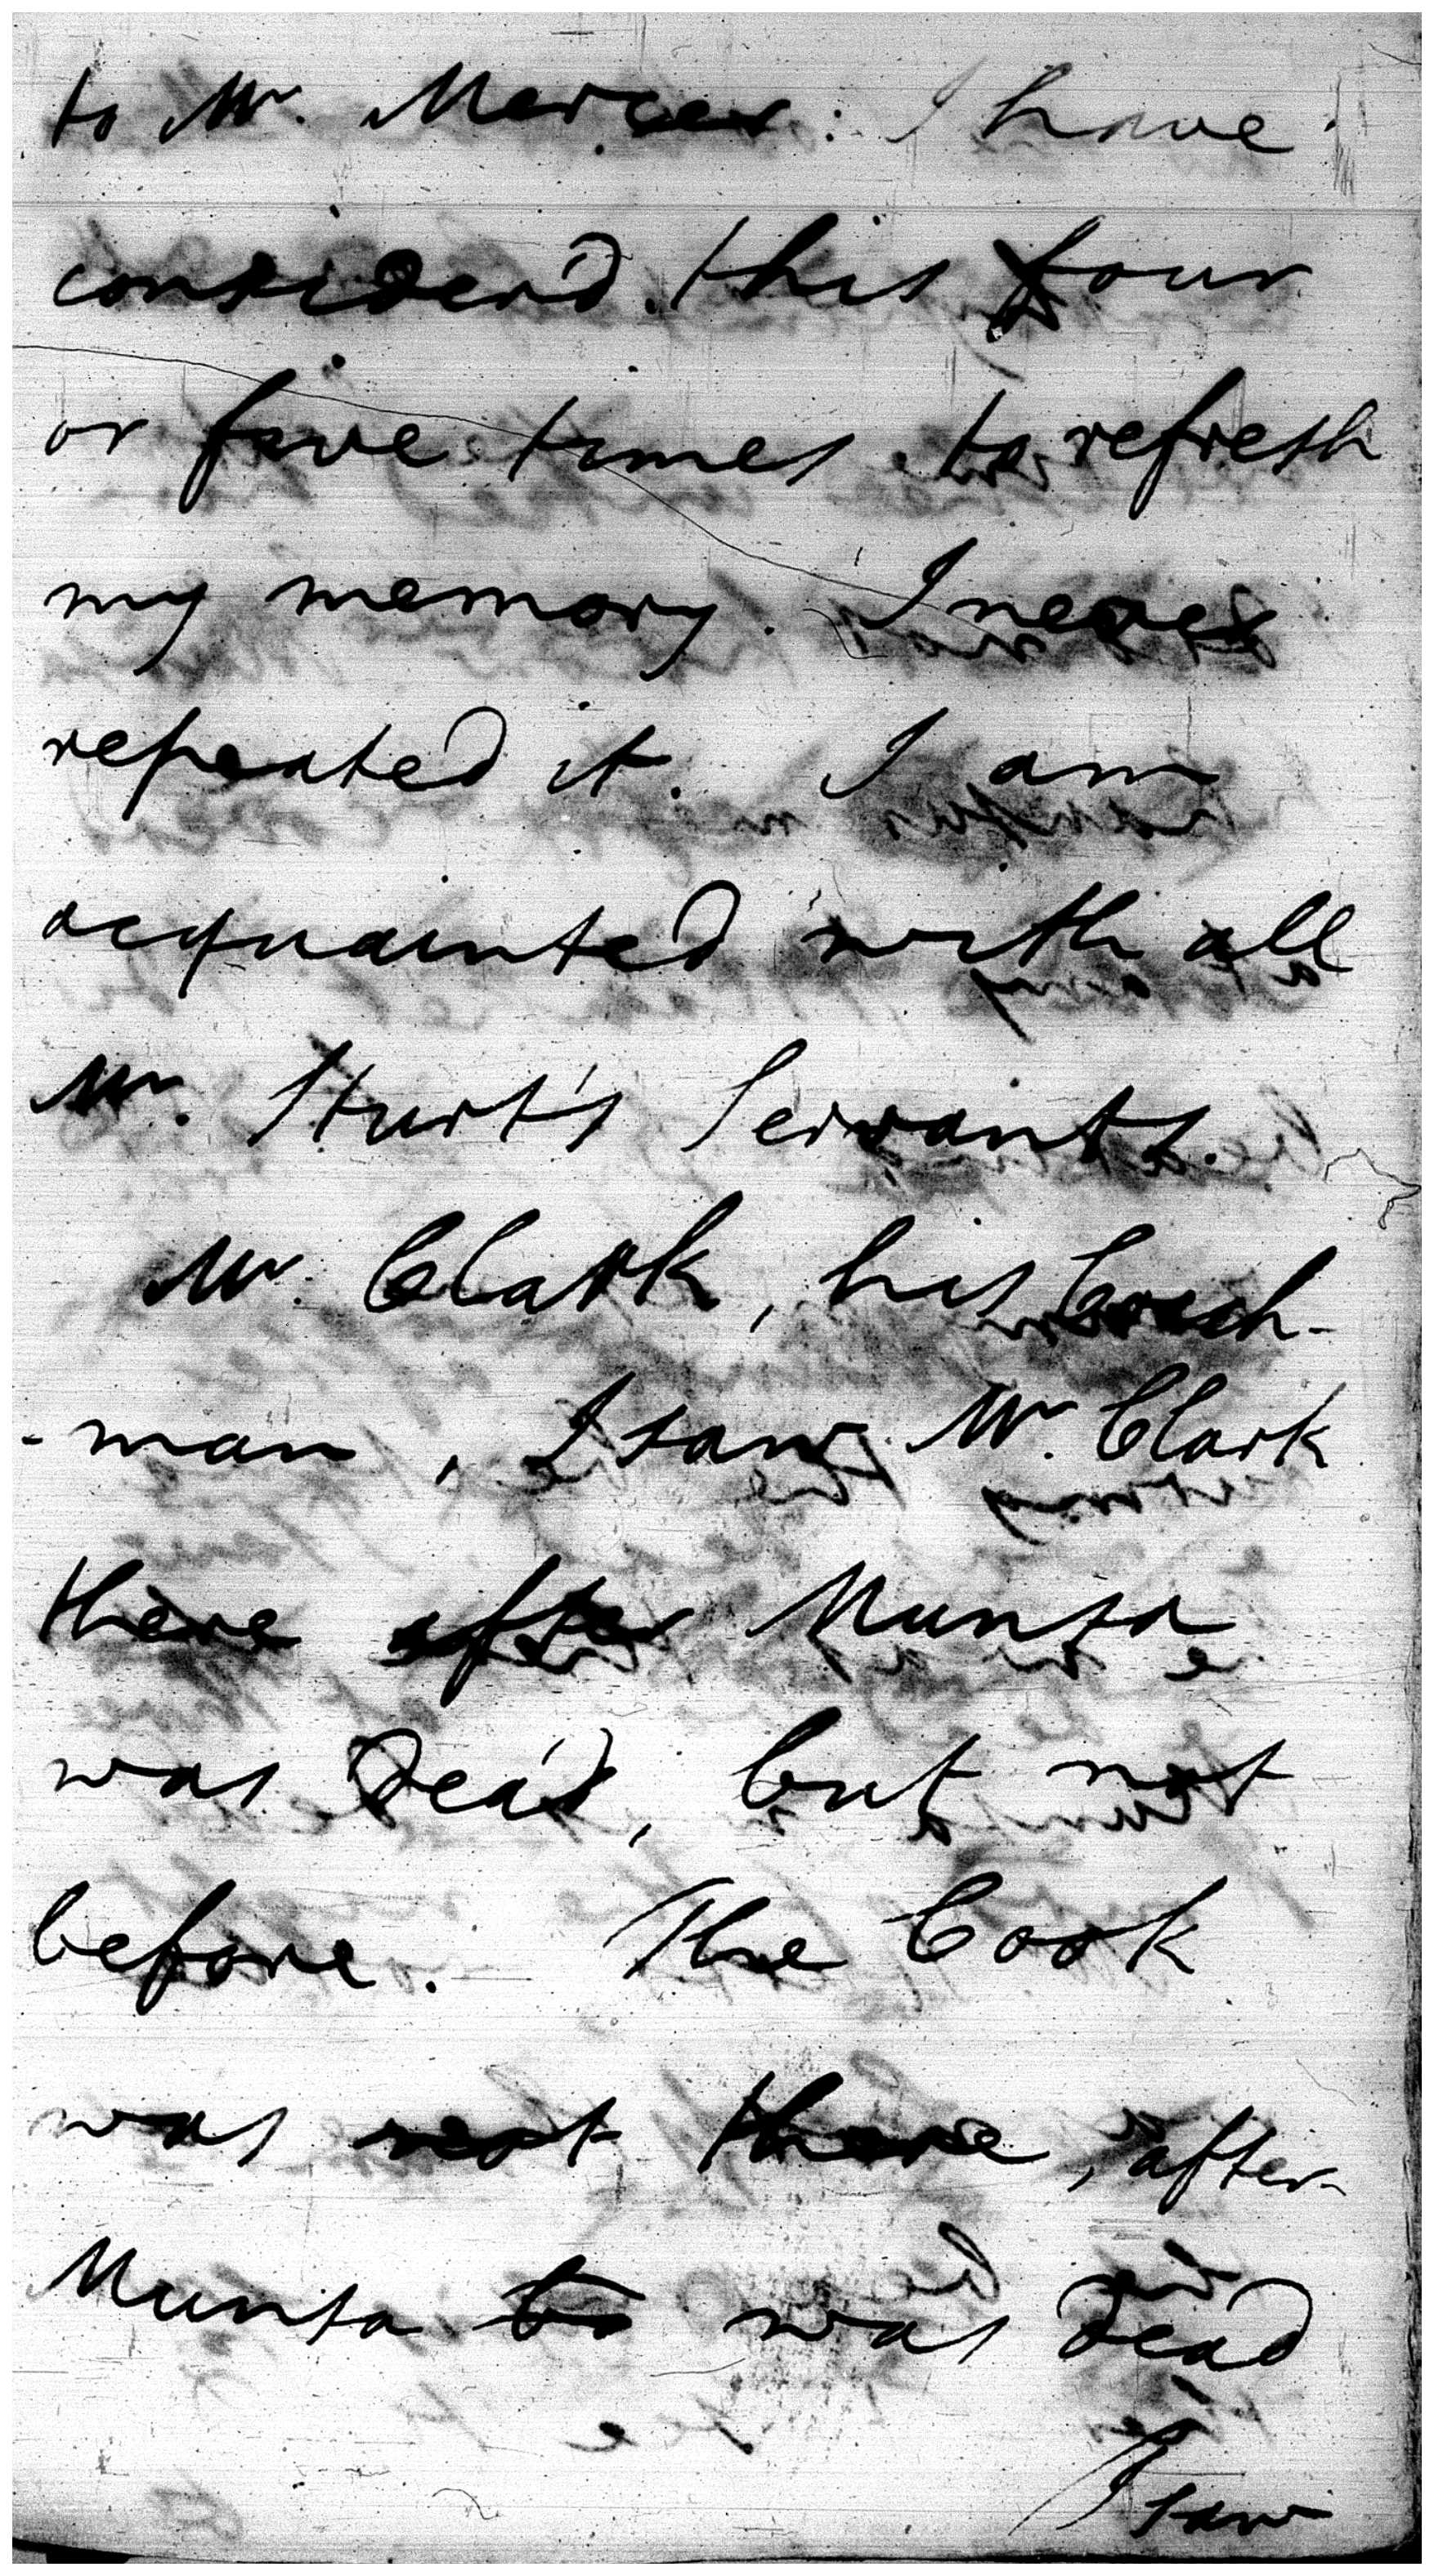 to Mr. Mercer: I have
considerd this four
or five times to refresh
my memory. I never
repeated it. I am
acquainted with all
Mr. Sturt's Servants.
Mr. Clark, his Coach-
-man, I saw Mr. Clark
there after Munsa
was dead, but not
before. The Cook
was not there, after
Munsa to was dead
I saw